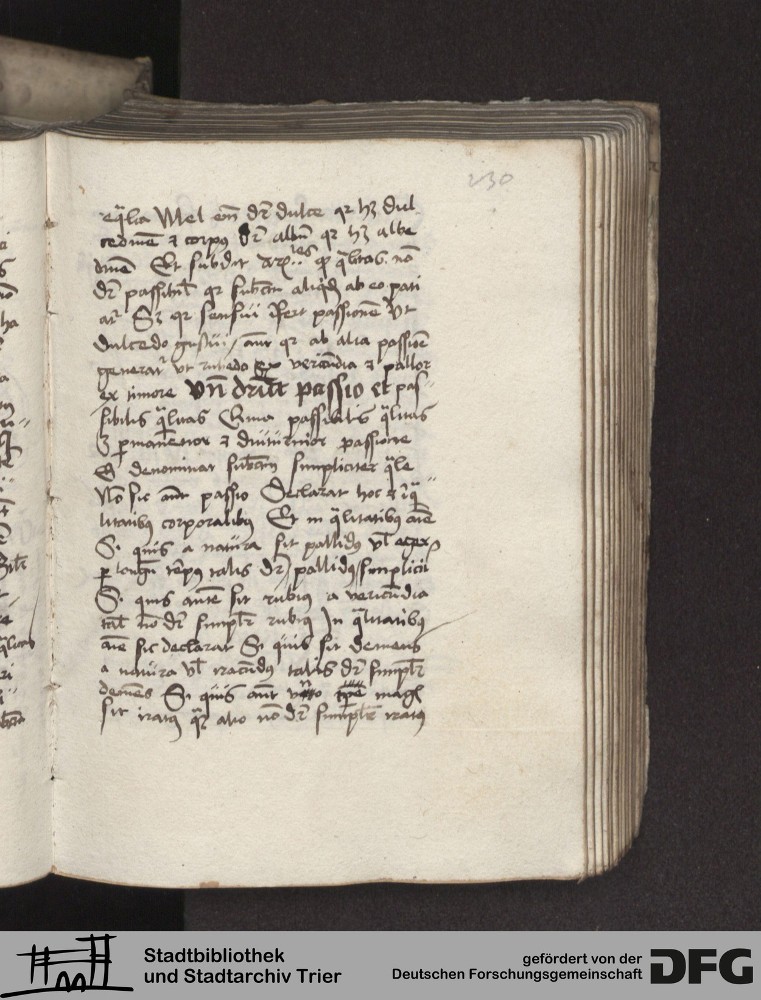 230
Mel em̄ dr̄ dulce qr hꝫ dul
cedinē ⁊ corpꝰ dr̄ albū qr hꝫ albe
dinē Et subdit q̄litas nō
dr̄ qr ab eo pati
Sꝫ qr sensui īfert passionē Vt
dulcedo gustui aut qr ab alia passiōe
generat᷑ ut rubedo ex verecūdia ⁊ pallor
ex timore Vn̄ dr̄ut passio et pas
sibilis q̄litas passibilis q̄litas
ꝫ ꝑmanentior ⁊ diuturnior passione
Et denominat subc̄tm simpliciter q̄le
Nō sic aut passio Declarat hoc
litatibꝰ corporalibꝰ Et in q̄litatibꝰ aīe
Si quis a natura sit pallidꝰ vl̄
ꝑ longū tēpꝰ talis dr̄ pallidꝰ simplicit̄
Si quis autē sit rubiꝰ a verecūdia
nō dr̄ simpl̄r rubiꝰ In q̄litatibꝰ
aīe sic declarat Si quis sit demens
a natura vl̄ iracūdꝰ talis dr̄ simpl̄r
demēs Si quis aut magꝭ
sit iratꝰ alio nō dr̄ simpl̄r iratꝰ
Stadtbibliothek
und Stadtarchiv Trier
gefördert von der
Deutschen Forschungsgemeinschaft
DFG